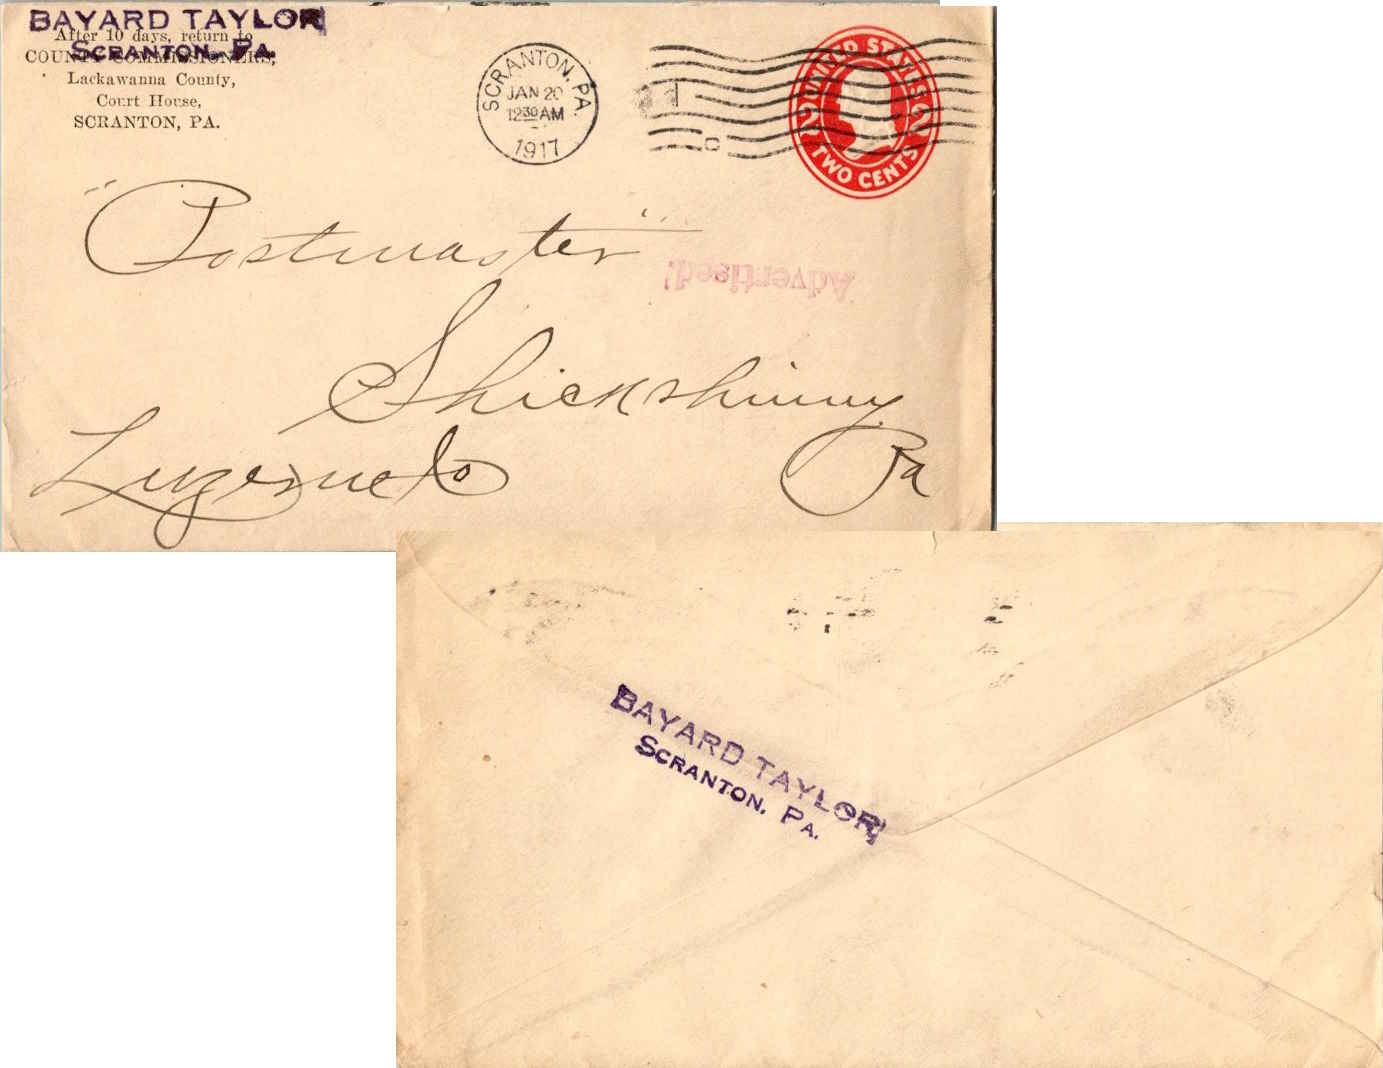 BAYARD TAYLOR
SCRANTON, PA.
After 10 days, return to
COUNTY COMMISSIONERS,
Lackawanna County,
Court House,
SCRANTON, PA.
SCRANTON, PA.
JAN 20
12 30 AM
1917
UNITED STATES
2 2
TWO CENTS
"Postmaster"
Advertised!
Shickshinny
Luzerne Co Pa
BAYARD TAYLOR
SCRANTON, PA.